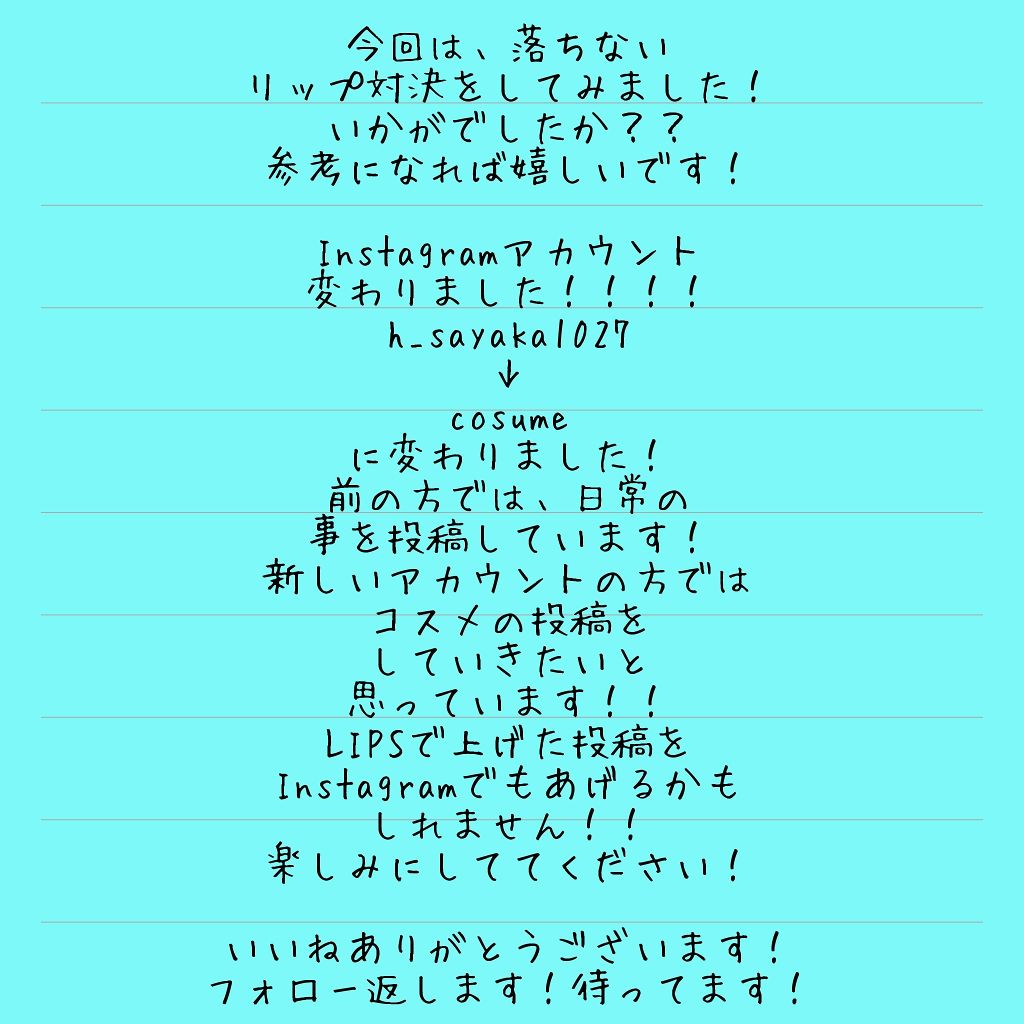 今回は、落ちない
リップ対決をしてみました！
いかがでしたか？？
参考になれば嬉しいです！
Instagramアカウント
変わりました！！！！
h_sayaka1027
↓
cosume
に変わりました！
前の方では、日常の
事を投稿しています！
新しいアカウントの方では
コスメの投稿を
していきたいと
思っています！！
LIPSで上げた投稿を
Instagramでもあげるかも
しれません！！
楽しみにしててください！
いいねありがとうございます！
フォロー返します！待ってます！